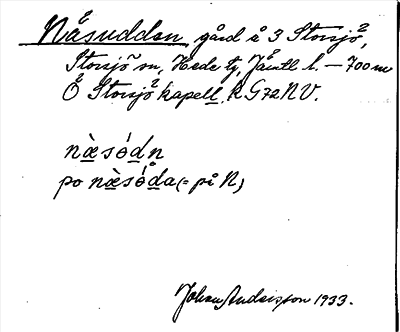 Nåsuddan gård å 3 Storsjö,
Storsjö sn, Hede tg, Jämtl. l. — 700 m
Ö Storsjö kapell. K G72NV.
næ̀só̱dn
po næ̀só̱da (= på N)
Johan Andersson 1933.